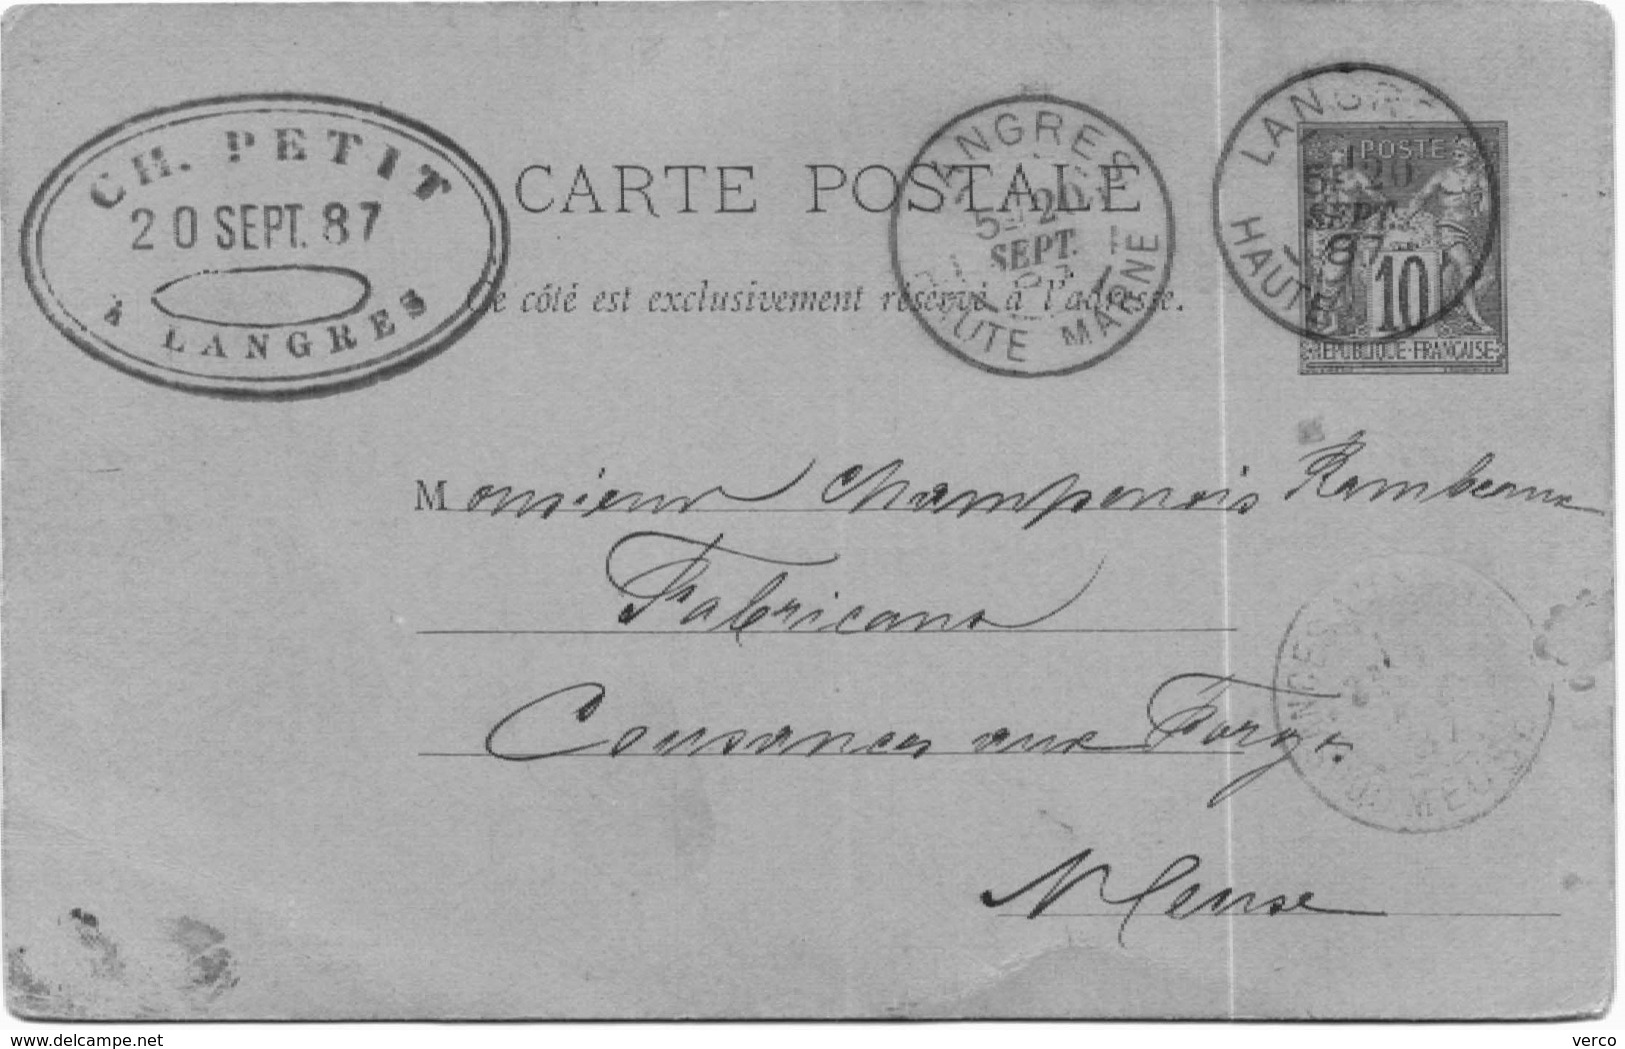 CH. PETIT
20 SEPT. 87
À LANGRES
CARTE POSTALE
Ce côté est exclusivement réservé à l'adresse.
LANGRES
5E 20
SEPT.
87
HAUTE MARNE
LANGRES
5E 20
SEPT.
87
HAUTE
POSTE
10
RÉPUBLIQUE-FRANÇAISE
Monsieur Champenois Rambeaux
Fabricant
Cousances aux Forges
Meuse
MEUSE
www.delcampe.net
verco